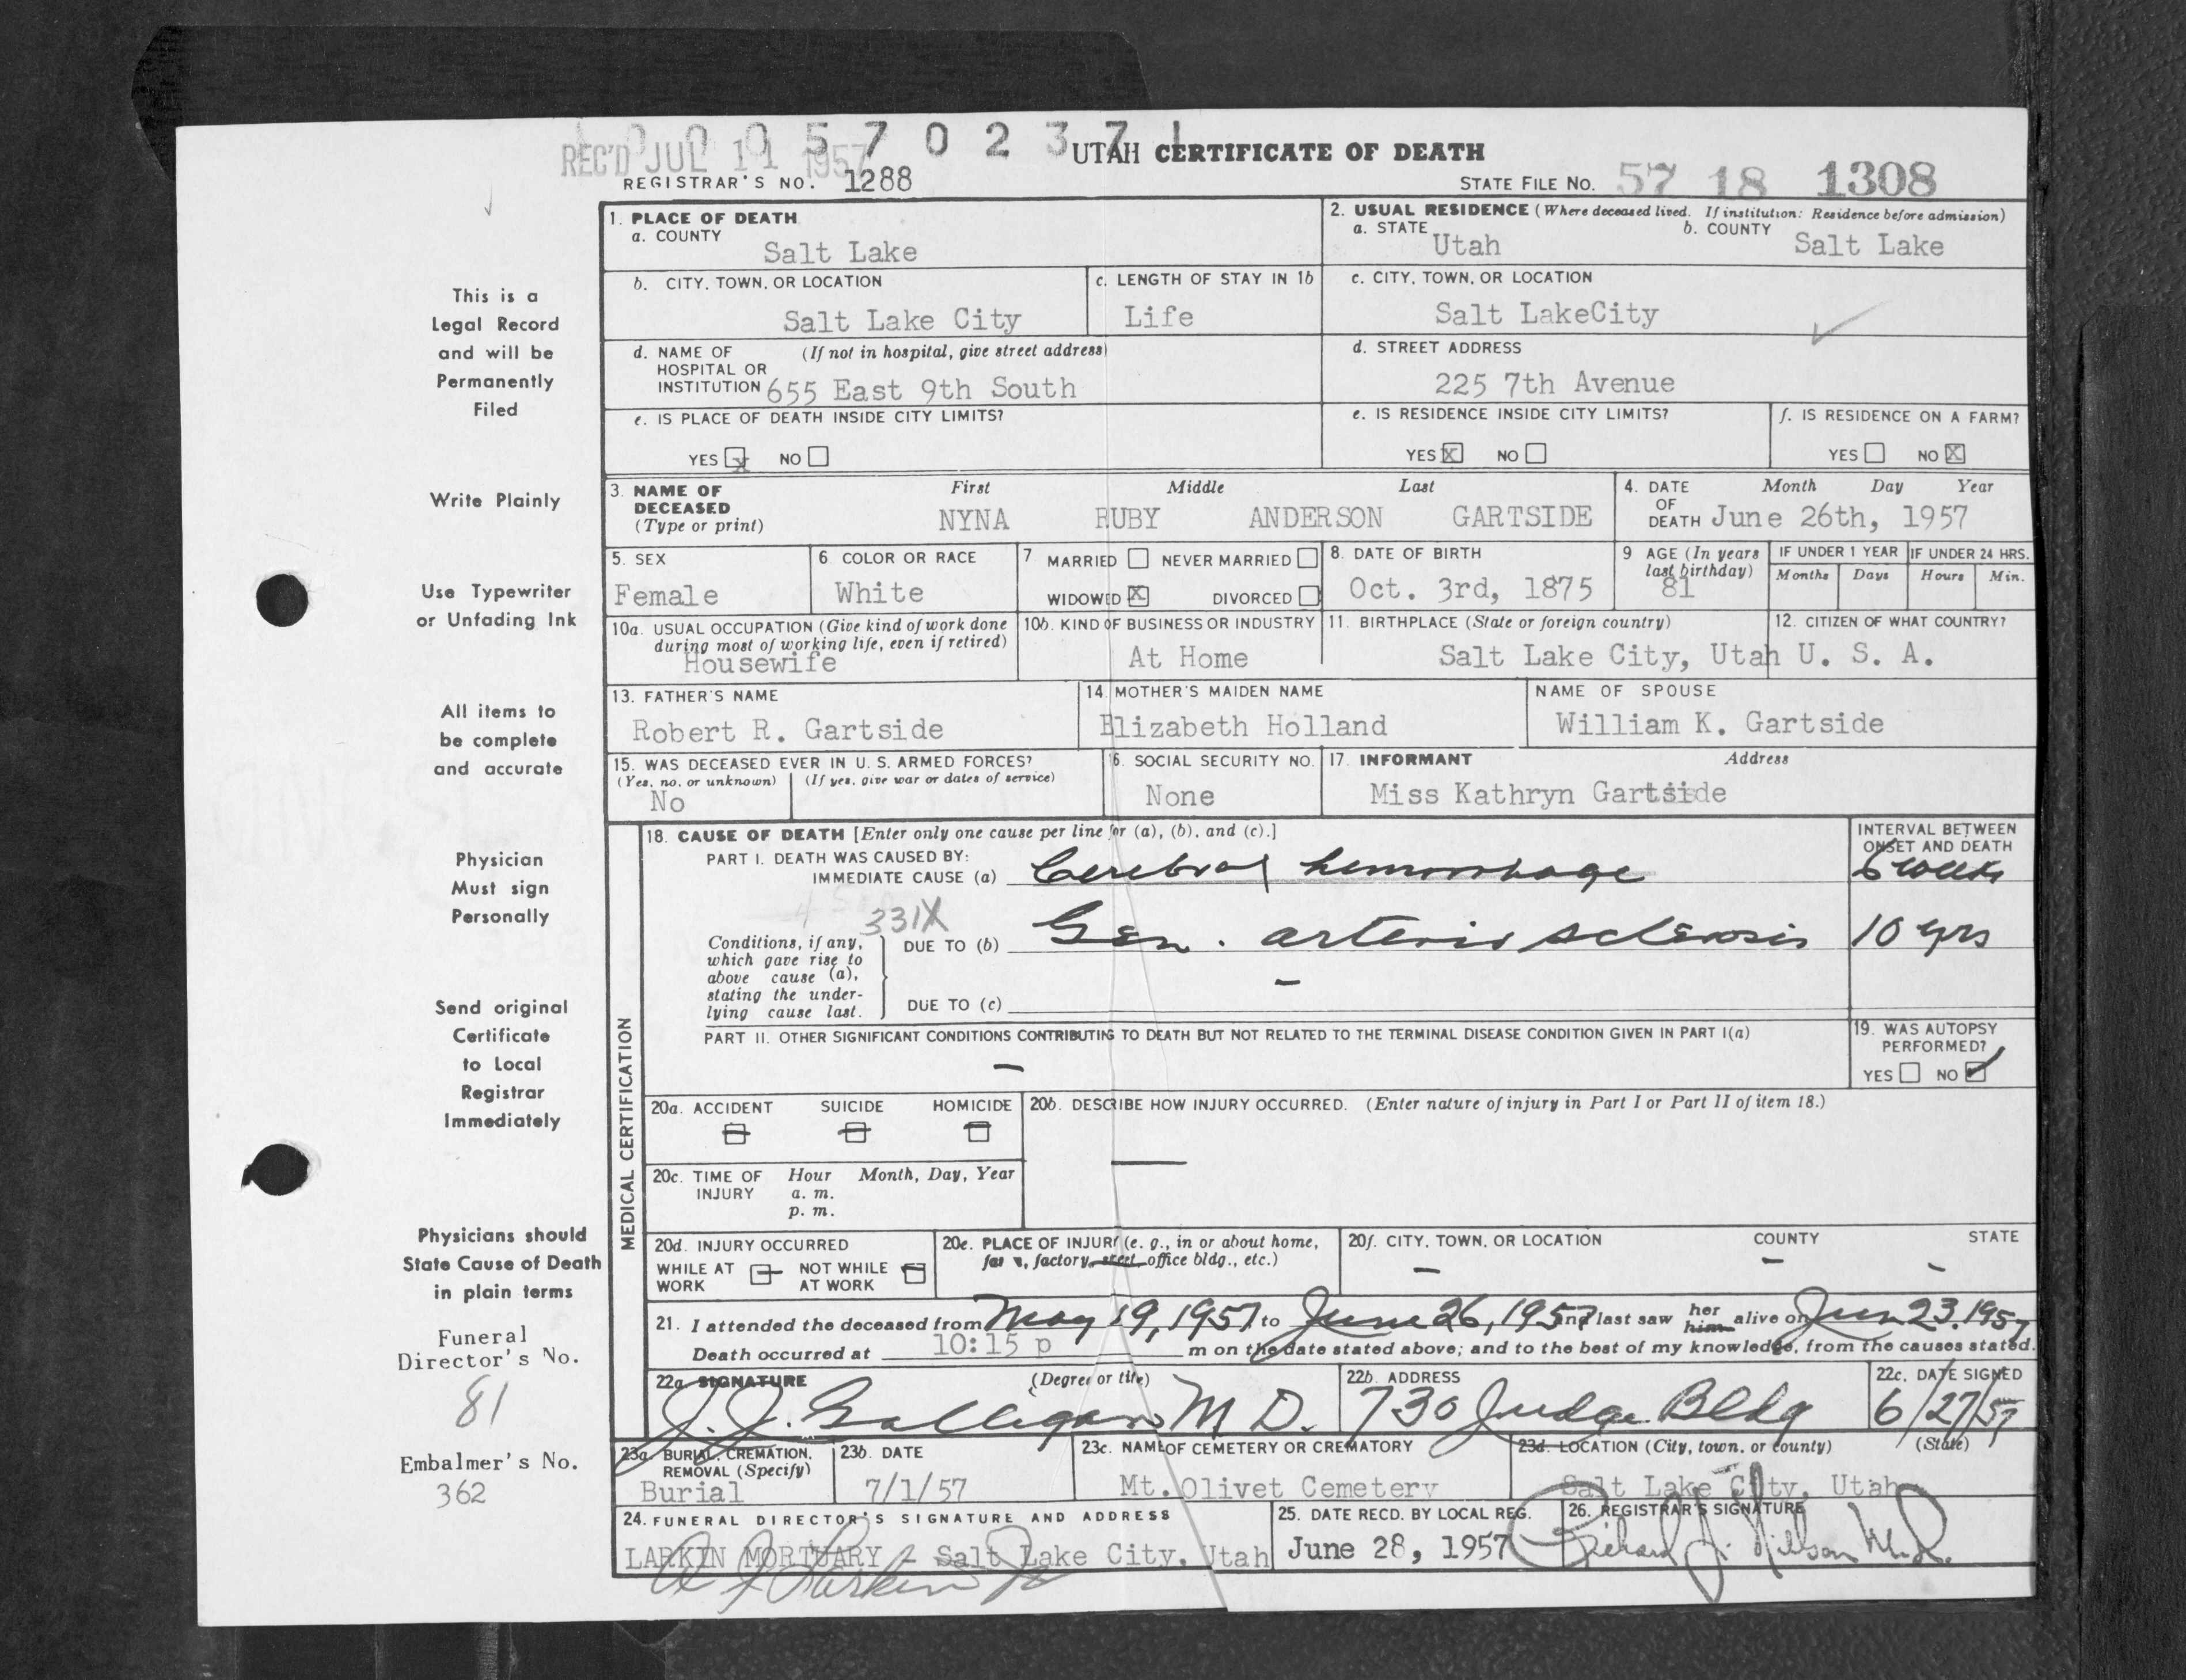 1 0 0 0 5 7 0 2 3 7 1
REC'D JUL 11 1957
UTAH CERTIFICATE OF DEATH
REGISTRAR'S NO. 1288
STATE FILE No. 57 18 1308
1. PLACE OF DEATH
a. COUNTY
Salt Lake
2. USUAL RESIDENCE (Where deceased lived. If institution: Residence before admission)
a. STATE Utah b. COUNTY Salt Lake
b. CITY, TOWN, OR LOCATION
Salt Lake City
c. LENGTH OF STAY IN 1b
Life
c. CITY, TOWN, OR LOCATION
Salt LakeCity
d. NAME OF (If not in hospital, give street address)
HOSPITAL OR
INSTITUTION 655 East 9th South
d. STREET ADDRESS
225 7th Avenue
e. IS PLACE OF DEATH INSIDE CITY LIMITS?
YES X NO
e. IS RESIDENCE INSIDE CITY LIMITS?
YES X NO
f. IS RESIDENCE ON A FARM?
YES NO X
3. NAME OF DECEASED (Type or print)
First Middle Last
NYNA RUBY ANDERSON GARTSIDE
4. DATE OF DEATH Month Day Year
June 26th, 1957
5. SEX
Female
6 COLOR OR RACE
White
7 MARRIED NEVER MARRIED
WIDOWED X DIVORCED
8. DATE OF BIRTH
Oct. 3rd, 1875
9 AGE (In years last birthday)
81
IF UNDER 1 YEAR
Months Days
IF UNDER 24 HRS.
Hours Min.
10a. USUAL OCCUPATION (Give kind of work done during most of working life, even if retired)
Housewife
10b. KIND OF BUSINESS OR INDUSTRY
At Home
11. BIRTHPLACE (State or foreign country)
Salt Lake City, Utah
12. CITIZEN OF WHAT COUNTRY?
U. S. A.
13. FATHER'S NAME
Robert R. Gartside
14. MOTHER'S MAIDEN NAME
Elizabeth Holland
NAME OF SPOUSE
William K. Gartside
15. WAS DECEASED EVER IN U. S. ARMED FORCES?
(Yes, no, or unknown) (If yes, give war or dates of service)
No
16. SOCIAL SECURITY NO.
None
17. INFORMANT Address
Miss Kathryn Gartside
MEDICAL CERTIFICATION
18. CAUSE OF DEATH [Enter only one cause per line for (a), (b), and (c).]
INTERVAL BETWEEN ONSET AND DEATH
PART I. DEATH WAS CAUSED BY:
IMMEDIATE CAUSE (a) Cerebral hemorrhage 6 weeks
331X
Conditions, if any, which gave rise to above cause (a), stating the underlying cause last.
DUE TO (b) Gen. arterio sclerosis 10 yrs
DUE TO (c) –
PART II. OTHER SIGNIFICANT CONDITIONS CONTRIBUTING TO DEATH BUT NOT RELATED TO THE TERMINAL DISEASE CONDITION GIVEN IN PART I(a)
–
19. WAS AUTOPSY PERFORMED?
YES NO ✓
20a. ACCIDENT SUICIDE HOMICIDE
20b. DESCRIBE HOW INJURY OCCURRED. (Enter nature of injury in Part I or Part II of item 18.)
—
20c. TIME OF INJURY Hour Month, Day, Year
a. m.
p. m.
20d. INJURY OCCURRED
WHILE AT WORK NOT WHILE AT WORK
20e. PLACE OF INJURY (e. g., in or about home, farm, factory, street, office bldg., etc.)
20f. CITY, TOWN, OR LOCATION COUNTY STATE
– – –
21. I attended the deceased from May 19, 1957, to June 26, 1957 and last saw her him alive on Jun 23, 1957
Death occurred at 10:15 p m on the date stated above; and to the best of my knowledge, from the causes stated.
22a. SIGNATURE (Degree or title)
J. J. Galligan M D.
22b. ADDRESS
730 Judge Bldg
22c. DATE SIGNED
6/27/57
23a. BURIAL, CREMATION, REMOVAL (Specify)
Burial
23b. DATE
7/1/57
23c. NAME OF CEMETERY OR CREMATORY
Mt. Olivet Cemetery
23d. LOCATION (City, town, or county) (State)
Salt Lake City, Utah
24. FUNERAL DIRECTOR'S SIGNATURE AND ADDRESS
LARKIN MORTUARY - Salt Lake City, Utah
25. DATE RECD. BY LOCAL REG.
June 28, 1957
26. REGISTRAR'S SIGNATURE
This is a
Legal Record
and will be
Permanently
Filed
Write Plainly
Use Typewriter
or Unfading Ink
All items to
be complete
and accurate
Physician
Must sign
Personally
Send original
Certificate
to Local
Registrar
Immediately
Physicians should
State Cause of Death
in plain terms
Funeral
Director's No.
81
Embalmer's No.
362